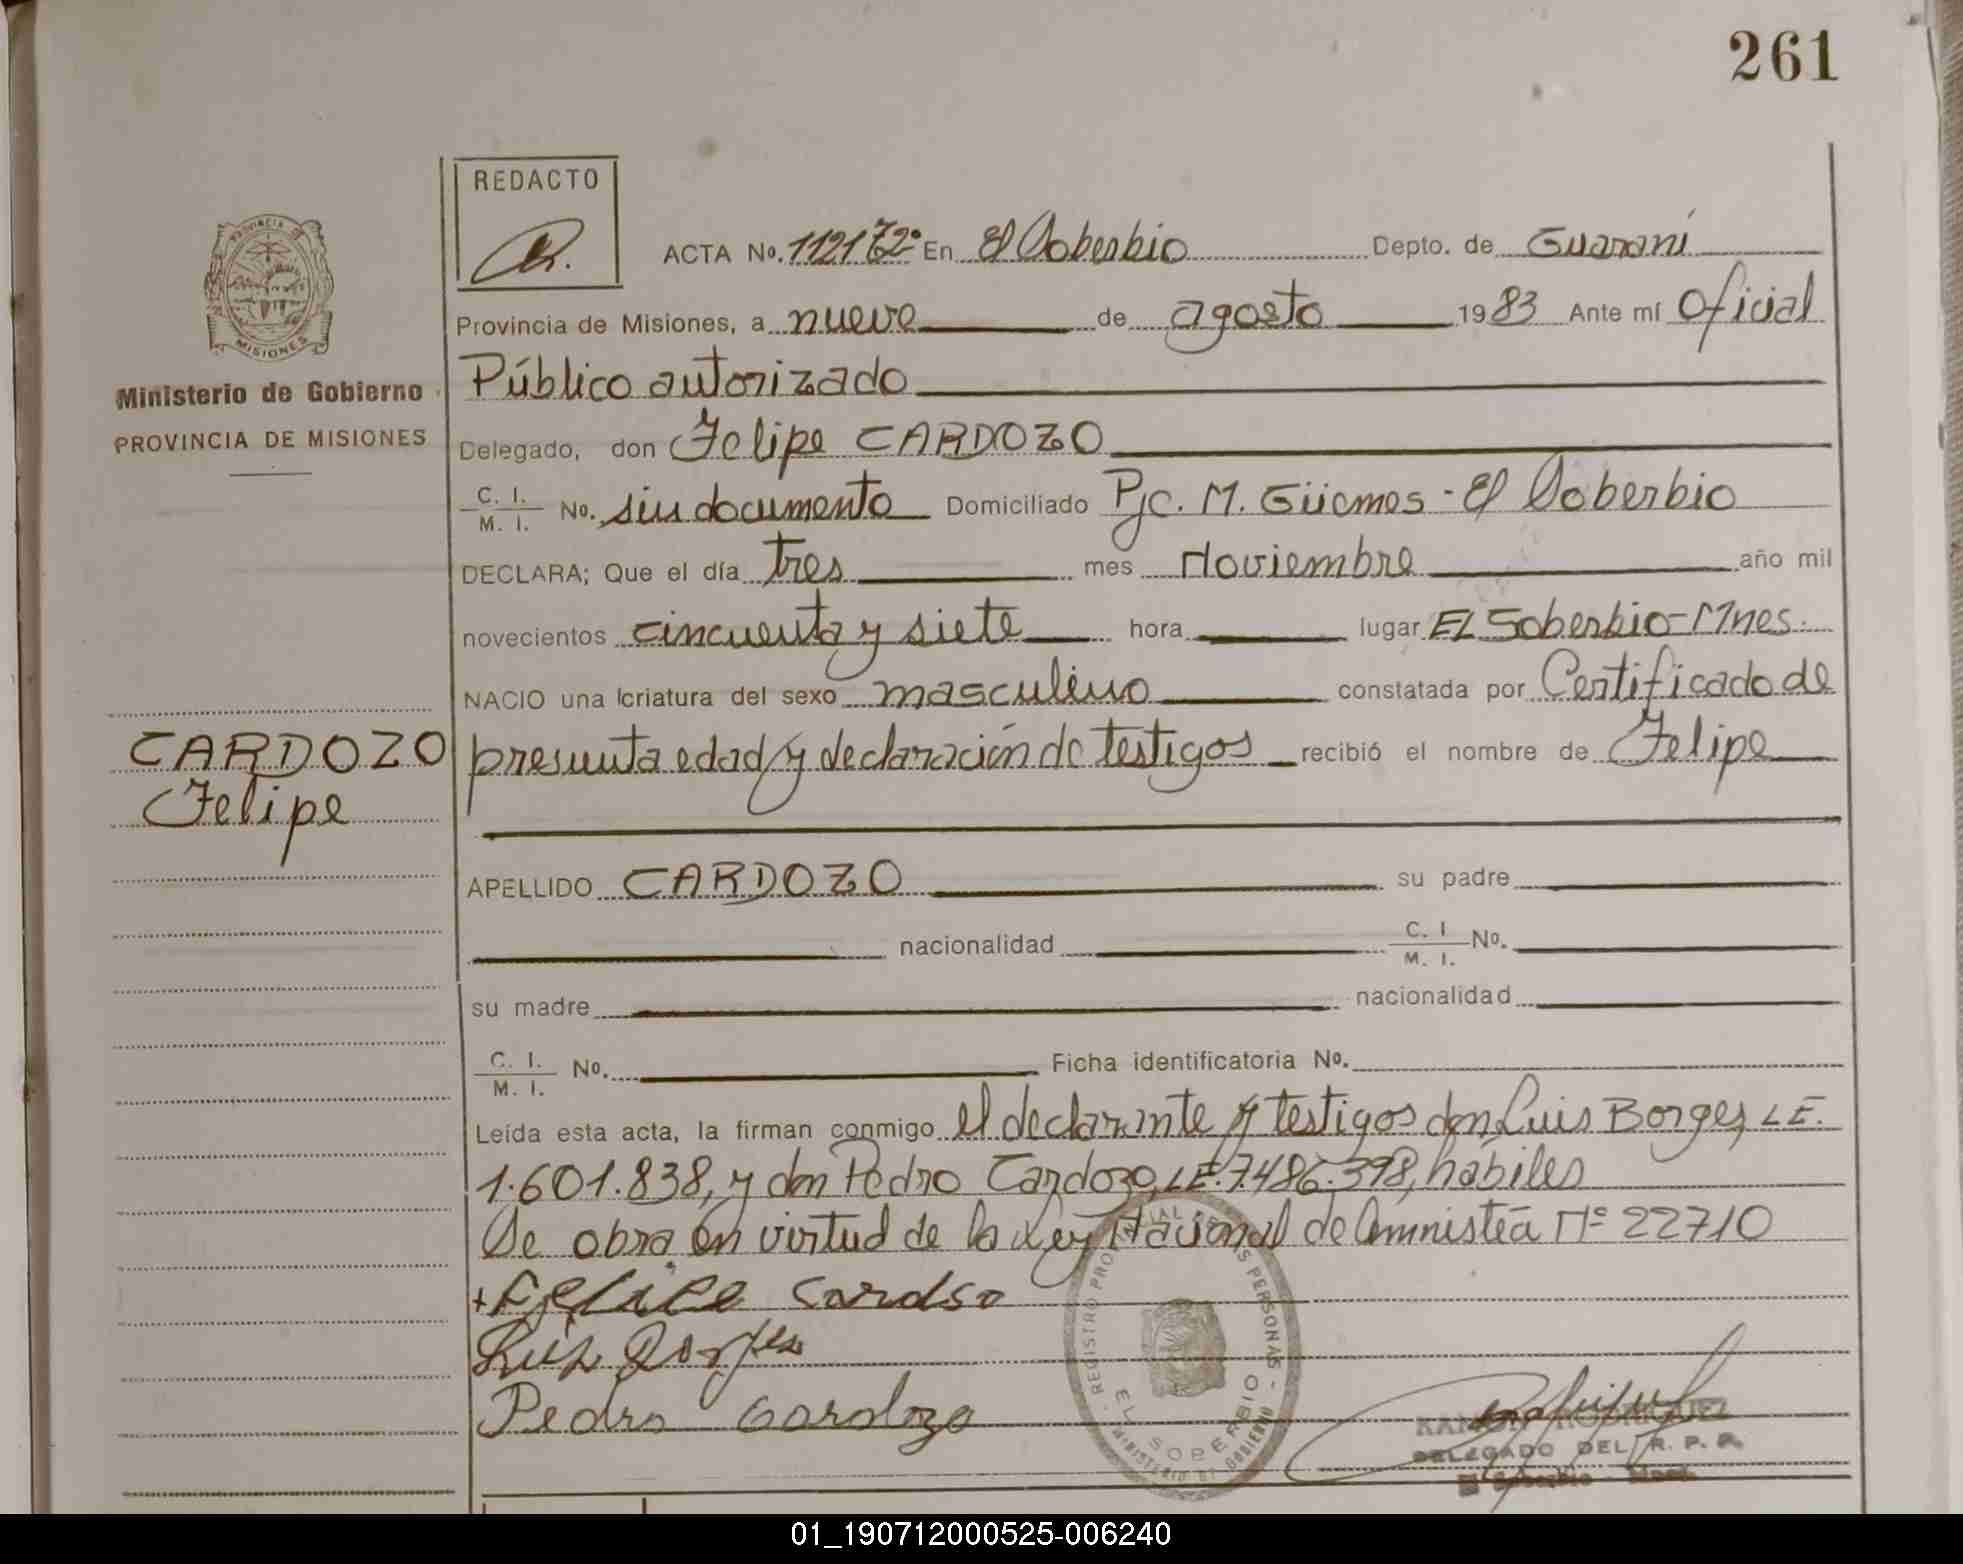 261
REDACTO
ACTA No. 112172º En El Soberbio Depto. de Guaraní
Provincia de Misiones, a nueve de agosto 1983 Ante mí Oficial
Público autorizado
Delegado, don Felipe CARDOZO
C. I. / M. I. No. sin documento Domiciliado Pje. M. Güemes - El Soberbio
DECLARA; Que el día tres mes Noviembre año mil
novecientos cincuenta y siete hora lugar EL Soberbio - Mnes.
NACIO una criatura del sexo masculino constatada por Certificado de
presunta edad y declaración de testigos recibió el nombre de Felipe
APELLIDO CARDOZO su padre
nacionalidad C. I / M. I. No.
su madre nacionalidad
C. I. / M. I. No. Ficha identificatoria No.
Leída esta acta, la firman conmigo el declarante y testigos don Luis Borges, L.E.
1.601.838, y don Pedro Cardozo, L.E. 7.486.398, hábiles
Se obra en virtud de la Ley Nacional de Amnistía Nº 22710
+ Felipe Cardoso
Luis Borges
Pedro Cardozo
PROVINCIA DE MISIONES
Ministerio de Gobierno
PROVINCIA DE MISIONES
CARDOZO
Felipe
REGISTRO PROVINCIAL DE LAS PERSONAS
EL SOBERBIO
MINISTERIO DE GOBIERNO
RAMON RODRIGUEZ
DELEGADO DEL R. P. P.
El Soberbio - Mnes.
01_190712000525-006240